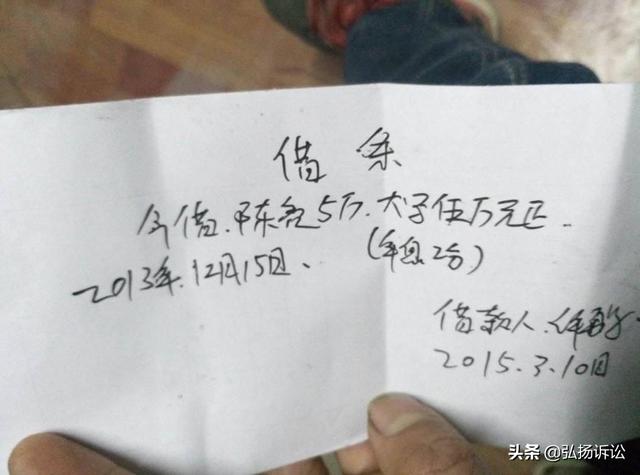 借条
今借.陈亮5万.大字伍万元正.
2013年.12月15日、(年息2分)
借款人.
2015.3.10日
头条 @弘扬诉讼